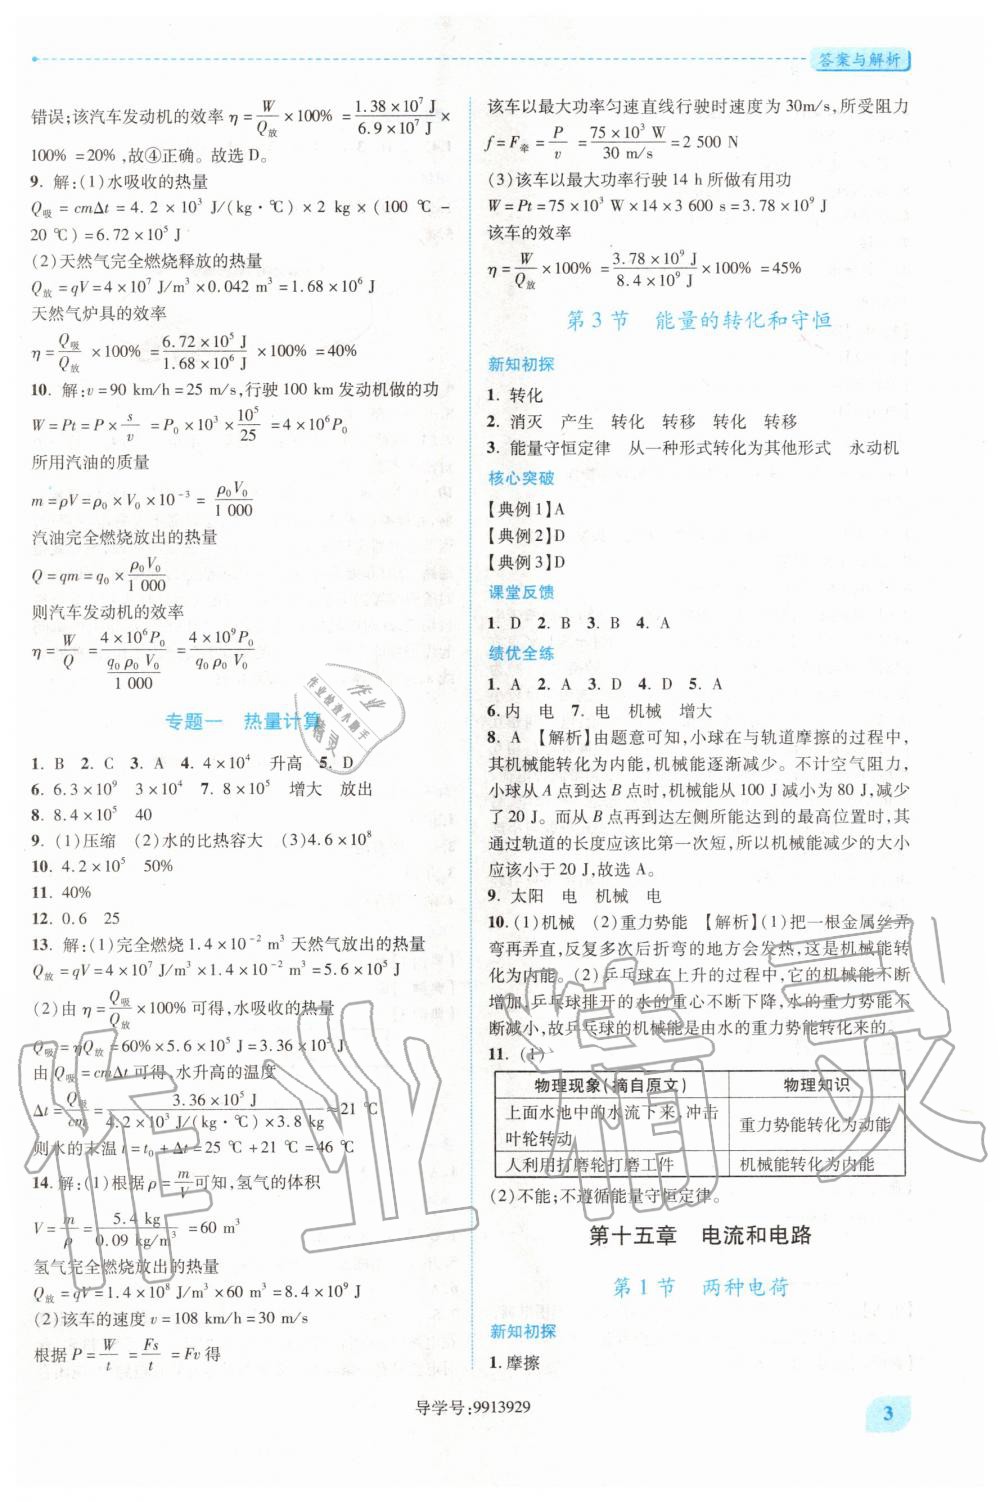 答案与解析
错误;该汽车发动机的效率 η = W/Q放 ×100% = 1.38×10⁷ J/6.9×10⁷ J ×
100% =20%,故④正确。故选 D。
9. 解:(1)水吸收的热量
Q吸 = cmΔt = 4.2 × 10³ J/(kg·℃) × 2 kg × (100 ℃ −
20 ℃)=6.72×10⁵ J
(2)天然气完全燃烧释放的热量
Q放 = qV=4×10⁷ J/m³ ×0.042 m³ =1.68×10⁶ J
天然气炉具的效率
η = Q吸/Q放 ×100% = 6.72×10⁵ J/1.68×10⁶ J ×100% =40%
10. 解:v=90 km/h=25 m/s,行驶 100 km 发动机做的功
W=Pt=P× s/v =P₀×10³× 10⁵/25 =4×10⁶P₀
所用汽油的质量
m=ρV=ρ₀×V₀×10⁻³ = ρ₀V₀/1 000
汽油完全燃烧放出的热量
Q=qm=q₀× ρ₀V₀/1 000
则汽车发动机的效率
η = W/Q = 4×10⁶P₀/(q₀ ρ₀ V₀/1 000) = 4×10⁹P₀/q₀ ρ₀ V₀
专题一 热量计算
1. B 2. C 3. A 4. 4×10⁴ 升高 5. D
6. 6.3×10⁹ 3×10⁴ 7. 8×10⁵ 增大 放出
8. 8.4×10⁵ 40
9. (1)压缩 (2)水的比热容大 (3)4.6×10⁸
10. 4.2×10⁵ 50%
11. 40%
12. 0.6 25
13. 解:(1)完全燃烧 1.4×10⁻² m³ 天然气放出的热量
Q放 =qV=4×10⁷ J/m³×1.4×10⁻² m³=5.6×10⁵ J
(2)由 η= Q吸/Q放 ×100% 可得,水吸收的热量
Q吸=ηQ放=60%×5.6×10⁵ J=3.36×10⁵ J
由 Q吸=cmΔt 可得,水升高的温度
Δt= Q吸/cm = 3.36×10⁵ J/4.2×10³ J/(kg·℃)×3.8 kg ≈21 ℃
则水的末温 t=t₀+Δt=25 ℃+21 ℃=46 ℃
14. 解:(1)根据 ρ= m/V 可知,氢气的体积
V= m/ρ = 5.4 kg/0.09 kg/m³ =60 m³
氢气完全燃烧放出的热量
Q放=qV=1.4×10⁸ J/m³×60 m³=8.4×10⁹ J
(2)该车的速度 v=108 km/h=30 m/s
根据 P= W/t = Fs/t =Fv 得
该车以最大功率匀速直线行驶时速度为 30m/s,所受阻力
f=F牵= P/v = 75×10³ W/30 m/s =2 500 N
(3)该车以最大功率行驶 14 h 所做有用功
W=Pt=75×10³ W×14×3 600 s=3.78×10⁹ J
该车的效率
η= W/Q放 ×100% = 3.78×10⁹ J/8.4×10⁹ J ×100%=45%
第3节 能量的转化和守恒
新知初探
1. 转化
2. 消灭 产生 转化 转移 转化 转移
3. 能量守恒定律 从一种形式转化为其他形式 永动机
核心突破
【典例1】A
【典例2】D
【典例3】D
课堂反馈
1. D 2. B 3. B 4. A
绩优全练
1. A 2. A 3. D 4. D 5. A
6.内 电 7. 电 机械 增大
8. A 【解析】由题意可知,小球在与轨道摩擦的过程中,
其机械能转化为内能,机械能逐渐减少。不计空气阻力,
小球从 A 点到达 B 点时,机械能从 100 J 减小为 80 J,减少
了 20 J。而从 B 点再到达左侧所能达到的最高位置时,其
通过轨道的长度应该比第一次短,所以机械能减少的大小
应该小于 20 J,故选 A。
9. 太阳 电 机械 电
10. (1)机械 (2)重力势能 【解析】(1)把一根金属丝弄
弯再弄直,反复多次后折弯的地方会发热,这是机械能转
化为内能。(2)乒乓球在上升的过程中,它的机械能不断
增加,乒乓球排开的水的重心不断下降,水的重力势能不
断减小,故乒乓球的机械能是由水的重力势能转化来的。
11. (1)
物理现象(摘自原文) 物理知识
上面水池中的水流下来,冲击
叶轮转动 重力势能转化为动能
人利用打磨轮打磨工件 机械能转化为内能
(2)不能;不遵循能量守恒定律。
第十五章 电流和电路
第1节 两种电荷
新知初探
1.摩擦
导学号:9913929
3
作业精灵
作业
作业检查小助手
精灵